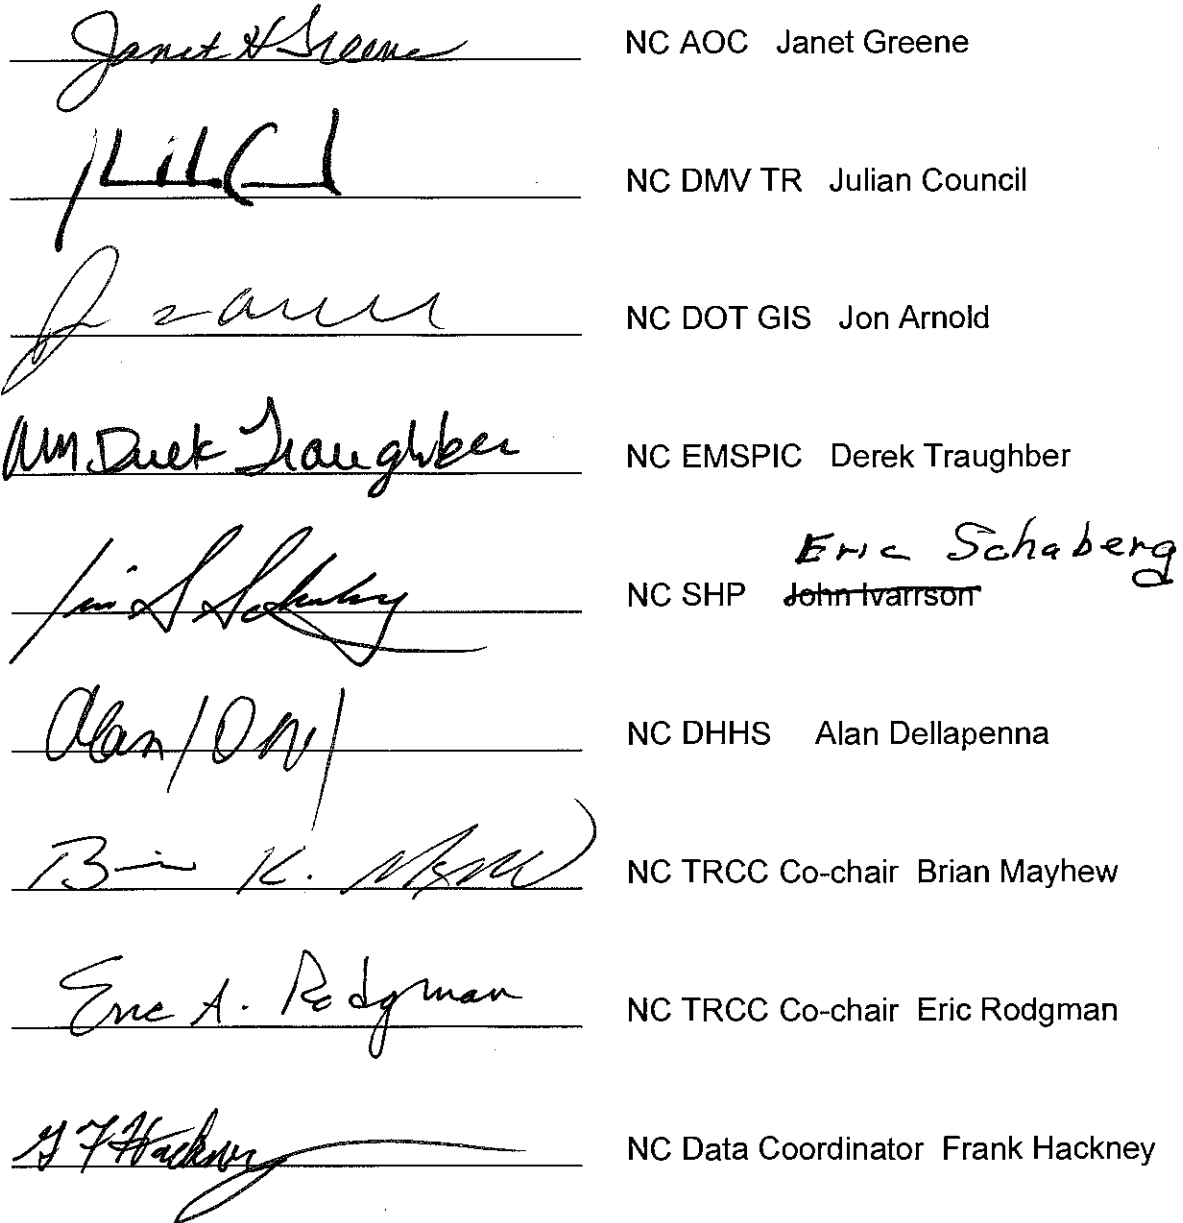 Janet H Greene NC AOC Janet Greene
NC DMV TR Julian Council
NC DOT GIS Jon Arnold
Wm. Derek Traughber NC EMSPIC Derek Traughber
Eric Schaberg
NC SHP John Ivarrson
Alan NC DHHS Alan Dellapenna
B K. NC TRCC Co-chair Brian Mayhew
Eric A. Rodgman NC TRCC Co-chair Eric Rodgman
G F Hackney NC Data Coordinator Frank Hackney